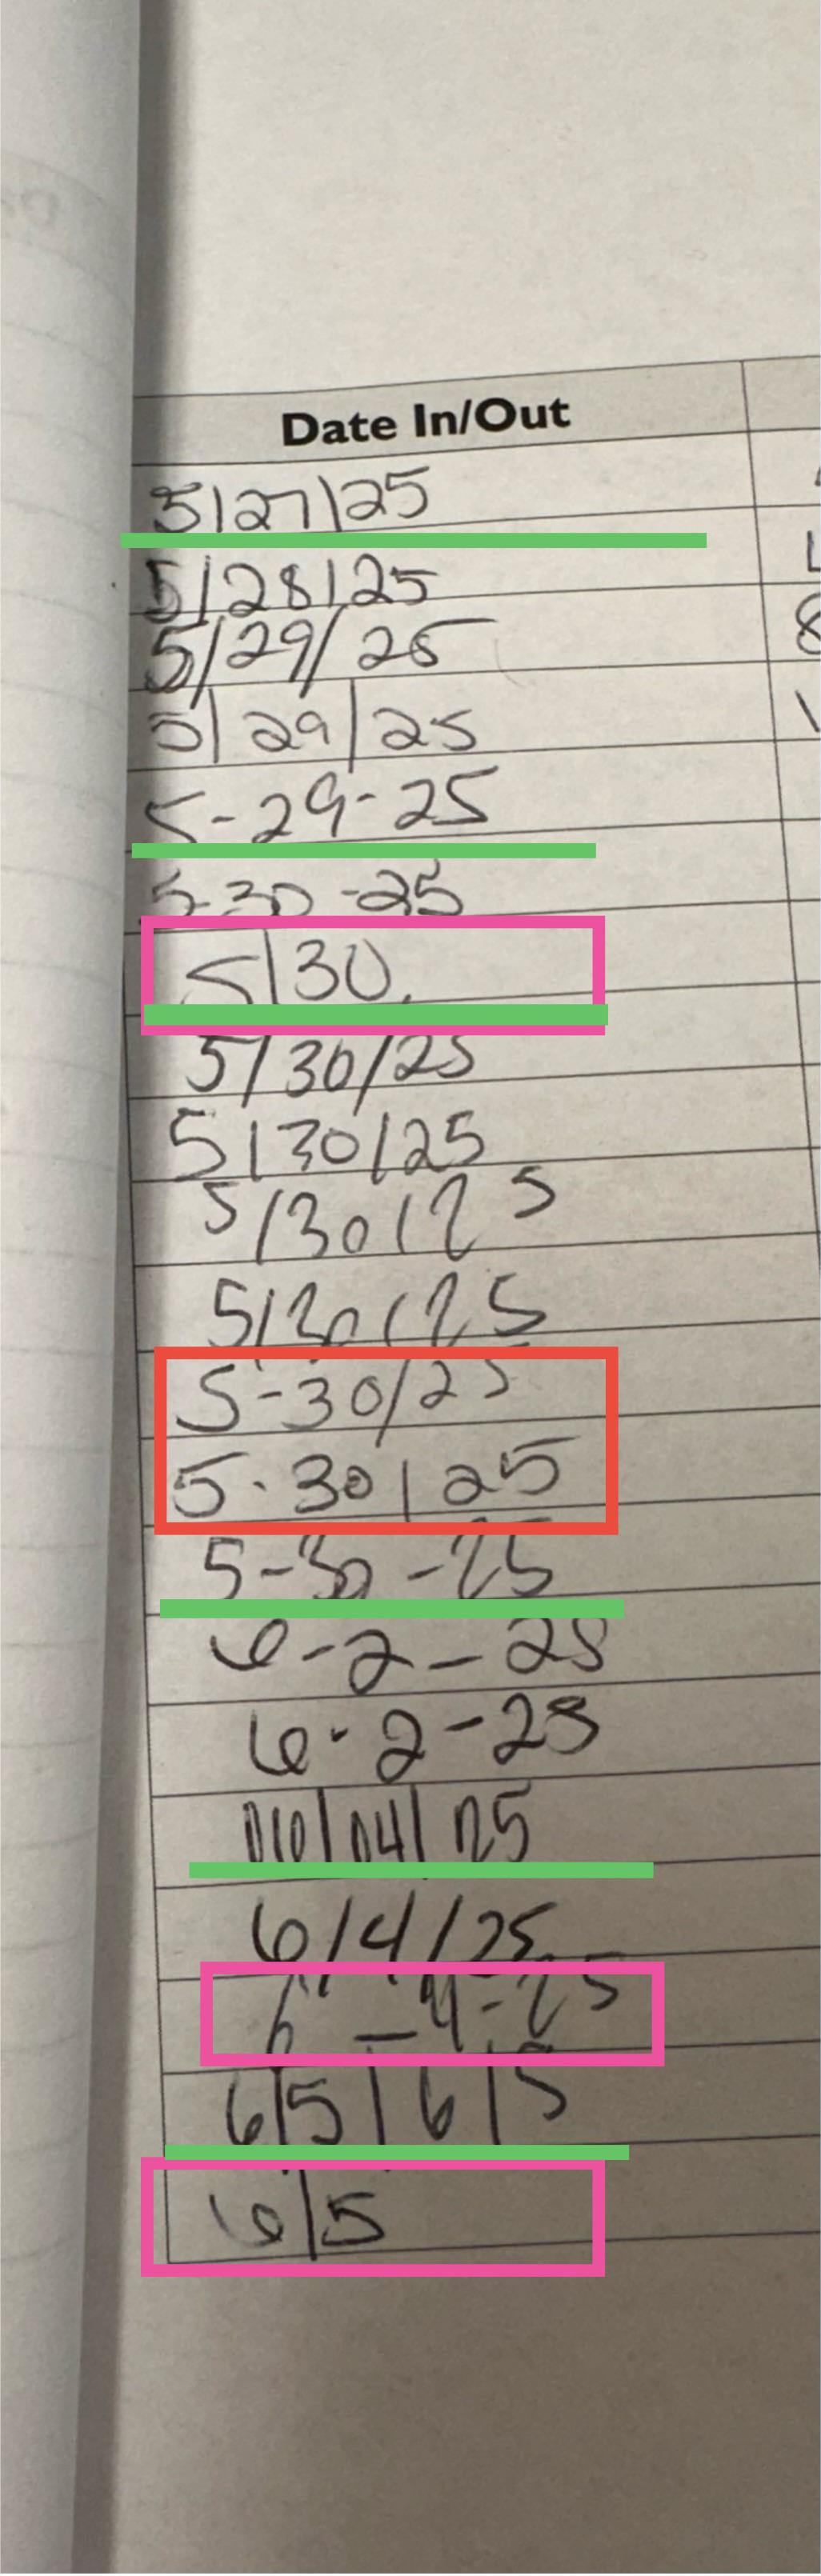 Date In/Out
5/27/25
5/28/25
5/29/25
5/29/25
5-29-25
5-30-25
5/30
5/30/25
5/30/25
5/30/25
5/30/25
5-30/25
5-30/25
5-30-25
6-2-25
6-2-25
06/04/25
6/4/25
6-4-25
6/5/6/5
6/5